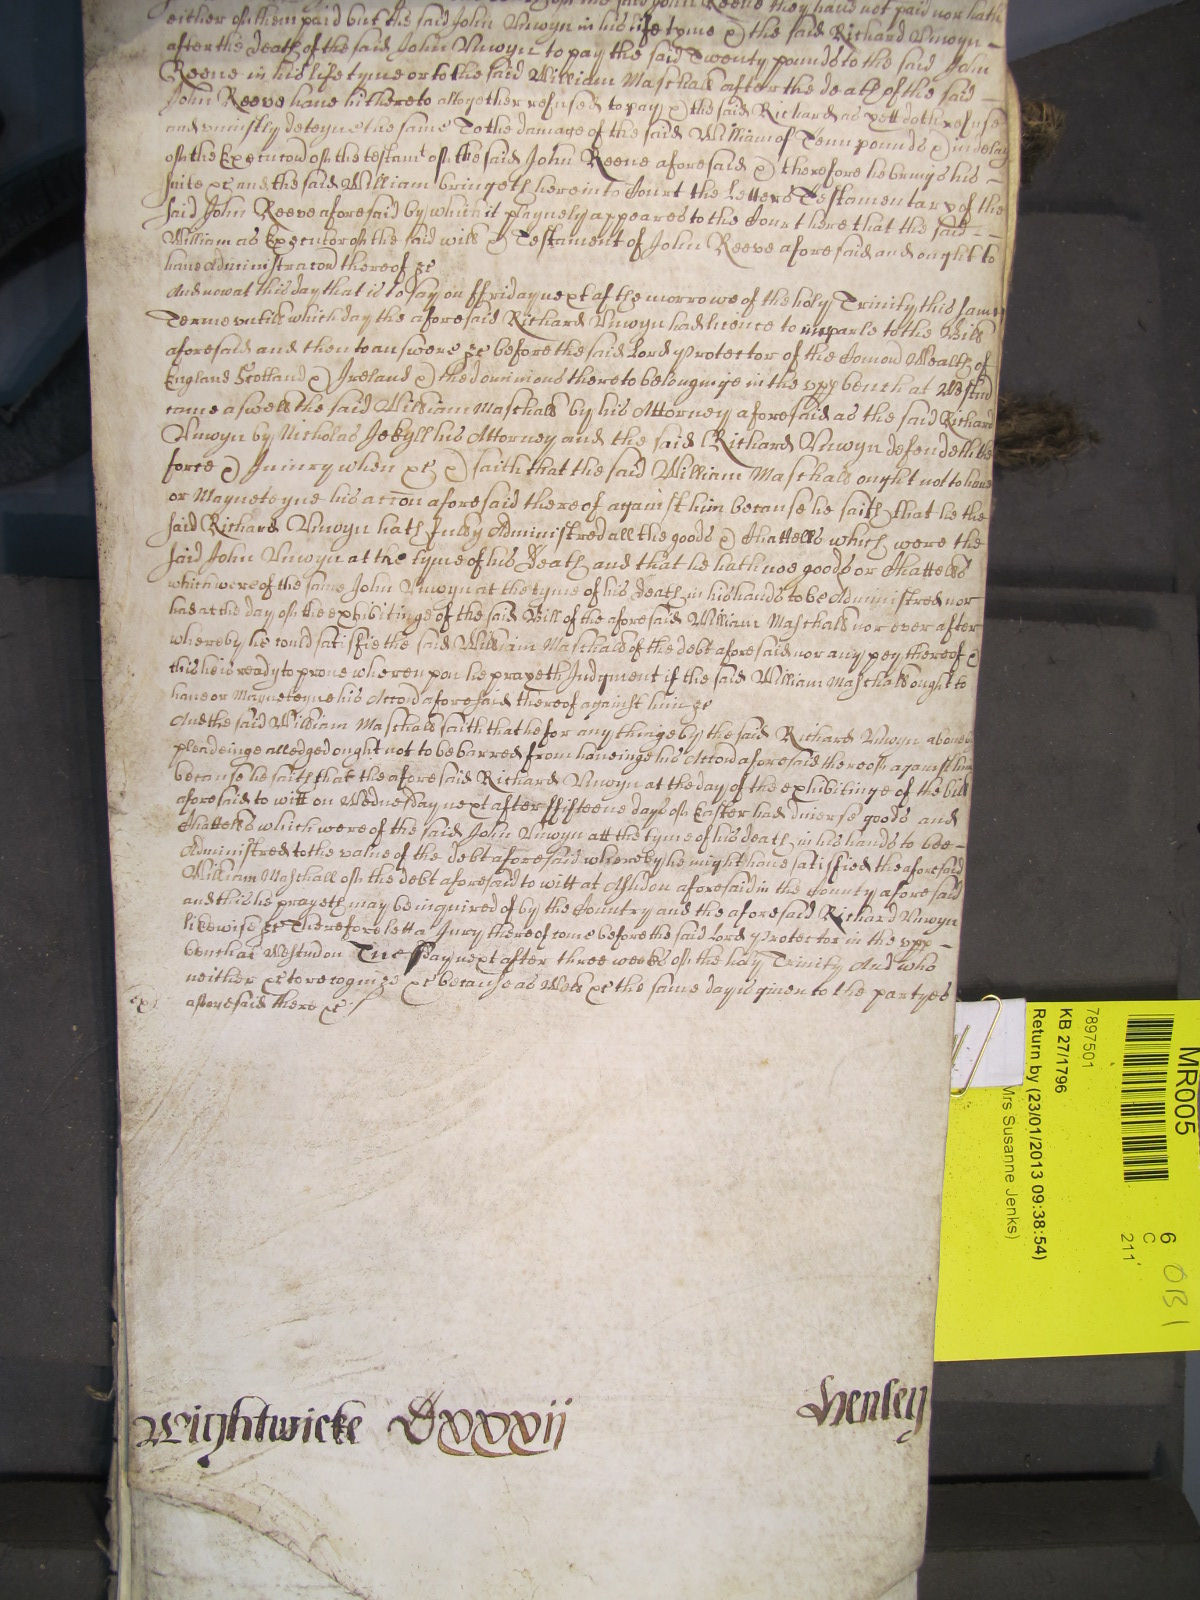 said John Reeve they hand not paid nor hath
either of them paid but the said John Unwyn in his life tyme & the said Richard Unwyn -
after the death of the said John Unwyn to pay the said Twenty pounds to the said John
Reeve in his life tyme or to the said William Maschall after the death of the said -
John Reeve have hithereto altogether refused to pay & the said Richard as yett doth refuse
and uniustly deteyne the same To the damage of the said William of Tenn pounds &
of the Execucon of the testamt of the said John Reeve aforesaid & therefore he brings his -
suite &c and the said William bringeth here into Court the Letters Testamentary of the
said John Reeve aforesaid by which it playnely appeares to the Court here that the said -
William as Executor of the said will & Testament of John Reeve aforesaid and ought to
have Administracon thereof &c
And now at this day that is to say on ffriday next after the morrowe of the holy Trinity this same
Terme untill which day the aforesaid Richard Unwyn had licence to imparle to the Bill
aforesaid and then to answere &c before the said Lord Protector of the Comon Wealth of
England Scotland & Ireland & the dominions thereto belonginge in the upp bench at Westm
came aswell the said William Maschall by his Attorney aforesaid as the said Richard
Unwyn by Nicholas Jekyll his Attorney and the said Richard Unwyn defendeth the
force & Iniury when &c & saith that the said William Maschall ought not to have
or Mayneteyne his accon aforesaid thereof against him because he saith that he the
said Richard Unwyn hath fully Administred all the goods & Chattells which were the
said John Unwyn at the tyme of his Death and that he hath noe goods or Chattells
which were of the same John Unwyn at the tyme of his death in his hands to be Administred nor
had at the day of the exhibitinge of the said Bill of the aforesaid William Maschall nor ever after
whereby he could satisfie the said William Maschall of the debt aforesaid nor any pey thereof &
this he is ready to prove whereupon he prayeth Judgment if the said William Maschall ought to
have or Mayneteyne his Accon aforesaid thereof against him &c
And the said William Maschall saith that he for any thinge by the said Richard Unwyn above in
pleadeinge alledged ought not to be barred from haveinge his Accon aforesaid thereof against him
because he saith that the aforesaid Richard Unwyn at the day of the exhibitinge of the bill
aforesaid to witt on Wednesday next after ffifteene days of Easter had diverse goods and
Chattells which were of the said John Unwyn att the tyme of his death in his hands to be -
Administred to the value of the debt aforesaid whereby he might have satisfied the aforesaid
William Maschall of the debt aforesaid to witt at Ashdon aforesaid in the County aforesaid
and this he prayeth may be inquired of by the Country and the aforesaid Richard Unwyn
likewise &c Therefore lett a Jury thereof come before the said Lord Protector in the upp -
bench at Westm on Tuesday next after three weeks of the holy Trinity And who
neither &c to recognize &c because as Well &c the same day is given to the partyes
aforesaid there &c
Wightwicke Dxxxii Henley
MR005
7897501
KB 27/1796
Return by (23/01/2013 09:38:54)
Mrs Susanne Jenks)
6
C
211